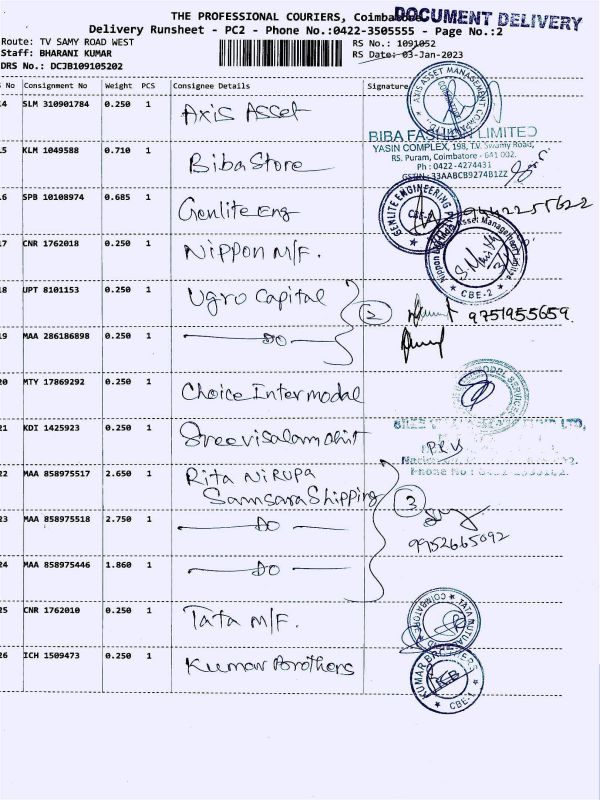 THE PROFESSIONAL COURIERS, Coimbatore
DOCUMENT DELIVERY
Delivery Runsheet - PC2 - Phone No.:0422-3505555 - Page No.:2
Route: TV SAMY ROAD WEST
RS No.: 1091052
Staff: BHARANI KUMAR
RS Date: 03-Jan-2023
DRS No.: DCJB109105202
No Consignment No Weight PCS Consignee Details Signature
4 SLM 310901784 0.250 1 Axis Asset
AXIS ASSET MANAGEMENT COMPANY
BIBA FASHION LIMITED
YASIN COMPLEX, 198, T.V. Swamy Road,
RS. Puram, Coimbatore - 641 002.
Ph : 0422-4274431
GSTIN : 33AABCB9274B1ZZ
5 KLM 1049588 0.710 1 Biba Store
6 SPB 10108974 0.685 1 Genlite Eng
GENLITE ENGINEERING
CBE
9442255622
17 CNR 1762018 0.250 1 Nippon M/F.
Nippon Life India Asset Management Limited
CBE-2
18 UPT 8101153 0.250 1 Ugro Capital
2 9751955659.
19 MAA 286186898 0.250 1 DO
20 MTY 17869292 0.250 1 Choice Intermodal
21 KDI 1425923 0.250 1 Sreevisalam chit
Phone No : 0422
22 MAA 858975517 2.650 1 Rita Nirupa
Samsara Shipping
3
23 MAA 858975518 2.750 1 DO
9952665092
24 MAA 858975446 1.860 1 DO
25 CNR 1762010 0.250 1 Tata M/F.
TATA MUTUAL
COIMBATORE
26 ICH 1509473 0.250 1 Kumar Brothers
KUMAR BROTHERS
K.B
CBE-1